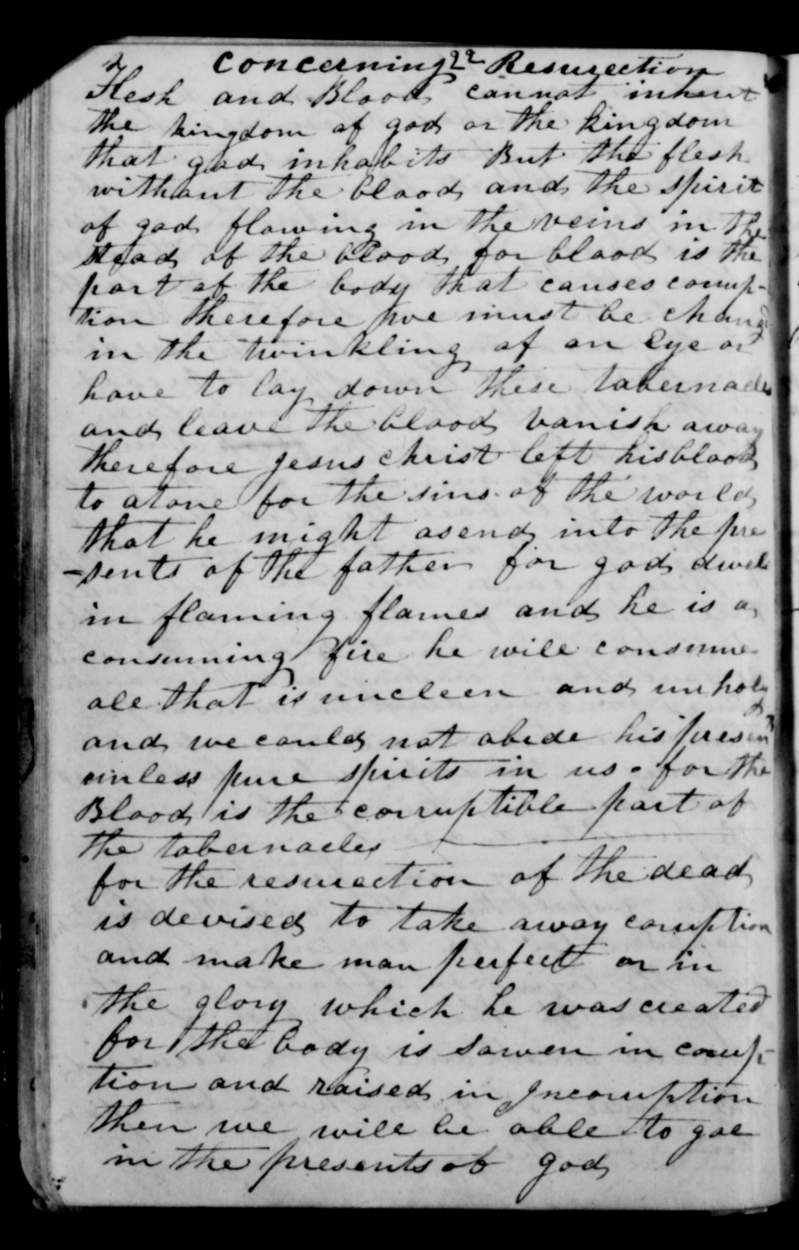 Concerning 22 Resurection
Flesh and Blood cannot inherit
the kingdom of god or the kingdom
that god inhabits But the flesh
without the blood and the spirit
of god flowing in the veins in the
stead of the blood for blood is the
part of the body that causes corrup-
tion therefore we must be changd
in the twinkling of an Eye or
have to lay down these tabernacles
and leave the blood vanish away
therefore jesus christ left his blood
to atone for the sins of the world
that he might asend into the pre
-sents of the father for god dwels
in flaming flames and he is a
consuming fire he will consume
all that is uncleen and unholy
and we could not abide his presen
unless pure spirits in us. for the
Blood is the corruptible part of
the tabernacles
for the resurection of the dead
is devised to take away coruption
and make man perfect or in
the glory which he was created
for the body is sowen in corup-
tion and raised in Incoruption
then we will be able to goe
in the presents of god